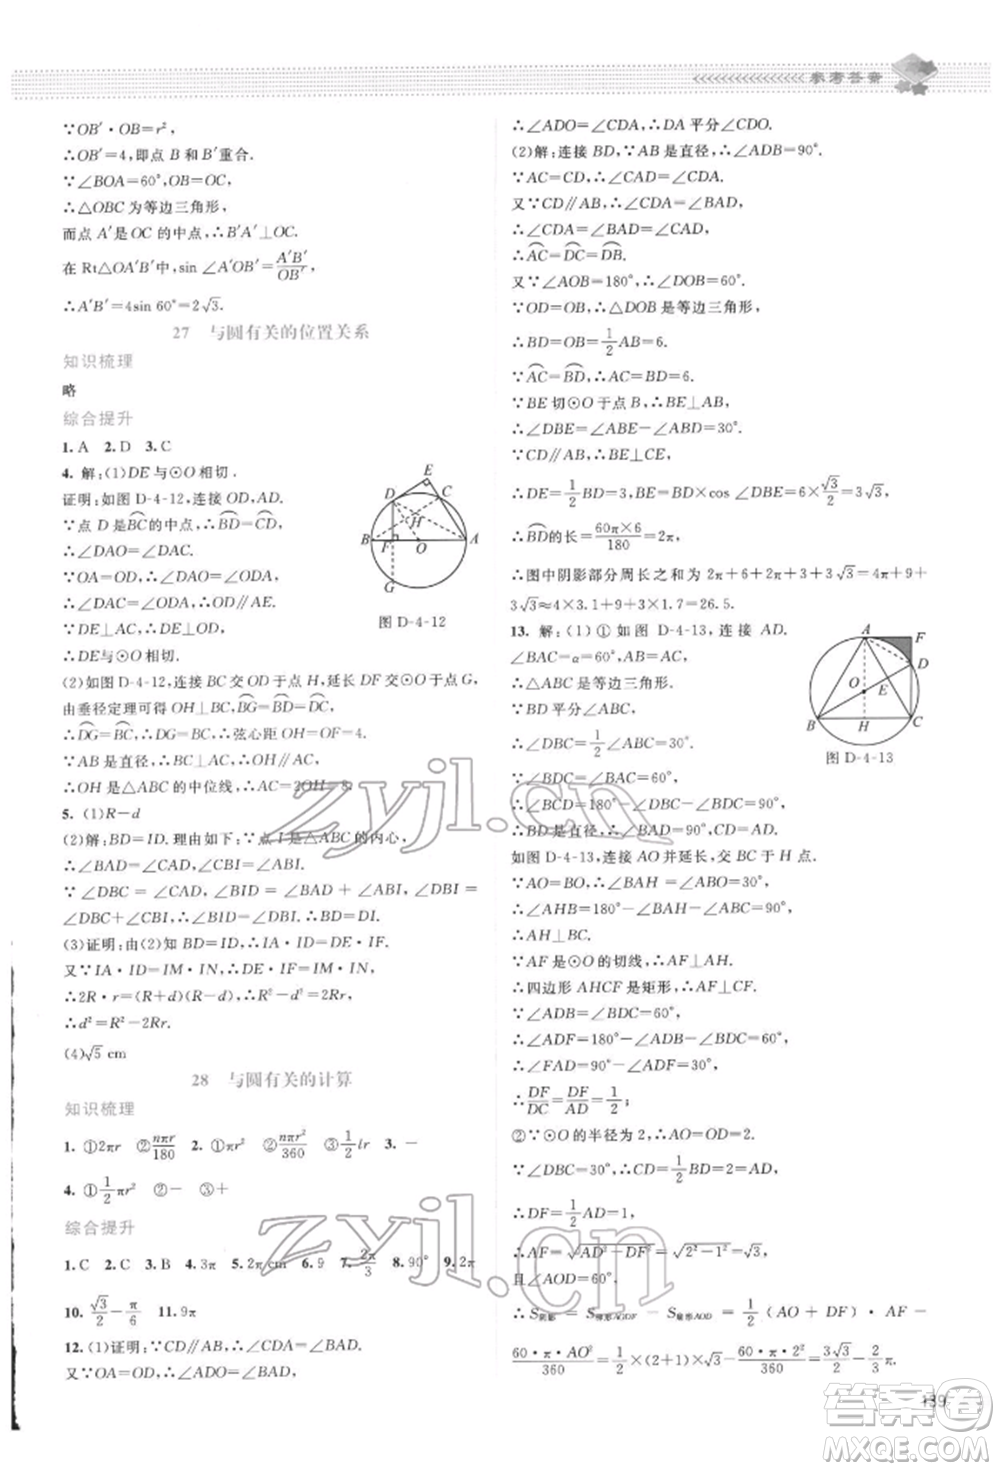 参考答案
∵OB′·OB=r²,
∴OB′=4,即点 B 和 B′重合.
∵∠BOA=60°,OB=OC,
∴△OBC 为等边三角形,
而点 A′是 OC 的中点,∴B′A′⊥OC.
在 Rt△OA′B′中,sin ∠A′OB′=A′B′/OB′,
∴A′B′=4sin 60°=2√3.
27 与圆有关的位置关系
知识梳理
略
综合提升
1. A 2. D 3. C
4. 解:(1)DE与⊙O 相切.
证明:如图 D-4-12,连接 OD,AD.
∵点 D 是BC的中点,∴BD=CD,
∴∠DAO=∠DAC.
∵OA=OD,
∴∠DAO=∠ODA,
∴∠DAC=∠ODA,
∴OD∥AE.
∵DE⊥AC,∴DE⊥OD,
∴DE与⊙O 相切.
E
D
C
H
B
F
O
A
G
图 D-4-12
(2)如图 D-4-12,连接 BC 交 OD 于点 H,延长 DF 交⊙O 于点 G,
由垂径定理可得 OH⊥BC,BG=BD=DC,
∴DG=BC,∴DG=BC,∴弦心距 OH=OF=4.
∵AB 是直径,∴BC⊥AC,∴OH∥AC,
∴OH 是△ABC 的中位线,∴AC=2OH=8.
5. (1)R-d
(2)解:BD=ID.理由如下:∵点 I 是△ABC 的内心,
∴∠BAD=∠CAD,∠CBI=∠ABI.
∵∠DBC=∠CAD,∠BID=∠BAD+∠ABI,∠DBI=
∠DBC+∠CBI,∴∠BID=∠DBI,∴BD=DI.
(3)证明:由(2)知 BD=ID,∴IA·ID=DE·IF.
又∵IA·ID=IM·IN,∴DE·IF=IM·IN,
∴2R·r=(R+d)(R-d),∴R²-d²=2Rr,
∴d²=R²-2Rr.
(4)√5 cm
28 与圆有关的计算
知识梳理
1. ①2πr ②nπr/180 2. ①πr² ②nπr²/360 ③1/2lr 3. -
4. ①1/2πr² ②- ③+
综合提升
1. C 2. C 3. B 4. 3π 5. 2π cm 6. 9 7. 2π/3 8. 90° 9. 2π
10. √3/2-π/6 11. 9π
12. (1)证明:∵CD∥AB,∴∠CDA=∠BAD.
又∵OA=OD,∴∠ADO=∠BAD,
∴∠ADO=∠CDA,∴DA 平分∠CDO.
(2)解:连接 BD,∵AB 是直径,∴∠ADB=90°.
∵AC=CD,∴∠CAD=∠CDA.
又∵CD∥AB,∴∠CDA=∠BAD,
∴∠CDA=∠BAD=∠CAD,
∴AC=DC=DB.
又∵∠AOB=180°,∴∠DOB=60°.
∵OD=OB,∴△DOB 是等边三角形,
∴BD=OB=1/2AB=6.
∵AC=BD,∴AC=BD=6.
∵BE 切⊙O 于点 B,∴BE⊥AB,
∴∠DBE=∠ABE-∠ABD=30°.
∵CD∥AB,∴BE⊥CE,
∴DE=1/2BD=3,BE=BD×cos ∠DBE=6×√3/2=3√3,
∴BD的长=60π×6/180=2π,
∴图中阴影部分周长之和为 2π+6+2π+3+3√3=4π+9+
3√3≈4×3.1+9+3×1.7=26.5.
13. 解:(1)①如图 D-4-13,连接 AD.
∠BAC=α=60°,AB=AC,
∴△ABC 是等边三角形,
∵BD 平分∠ABC,
∴∠DBC=1/2∠ABC=30°.
∵∠BAC=60°,
∴∠BDC=60°,
∴∠BCD=180°-∠BDC-∠DBC=90°,
∴BD是直径,∴∠BAD=90°.
A
F
D
O
E
B
H
C
图 D-4-13
如图 D-4-13,连接 AO并延长,交 BC于 H 点.
∵AO=BO,∴∠ABO=∠BAO=30°,
∴∠AHB=180°-∠BAO-∠ABC=90°,
∴AH⊥BC.
∵AF 是⊙O 的切线,∴AF⊥AH,
∴四边形 AHCF 是矩形,∴AF⊥CF.
∵∠ADB=∠BDC=60°,
∴∠ADF=180°-∠ADB-∠BDC=60°,
∴DF/DC=DF/AD=1/2;
②∵⊙O 的半径为 2,∴AO=OD=2.
∵∠DBC=30°,∴CD=1/2BD=2,AD=CD=2,
∴DF=1/2AD=1,
∴AF=√AD²-DF²=√2²-1²=√3,
且∠AOD=60°,
∴S阴影=S梯形AODF-S扇形AOD=1/2(AO+DF)·AF-
60·π·AO²/360=1/2×(2+1)×√3-60·π·2²/360=3√3/2-2/3π.
139
zyjl.cn
zyjl.cn
答案圈
MXQE.COM